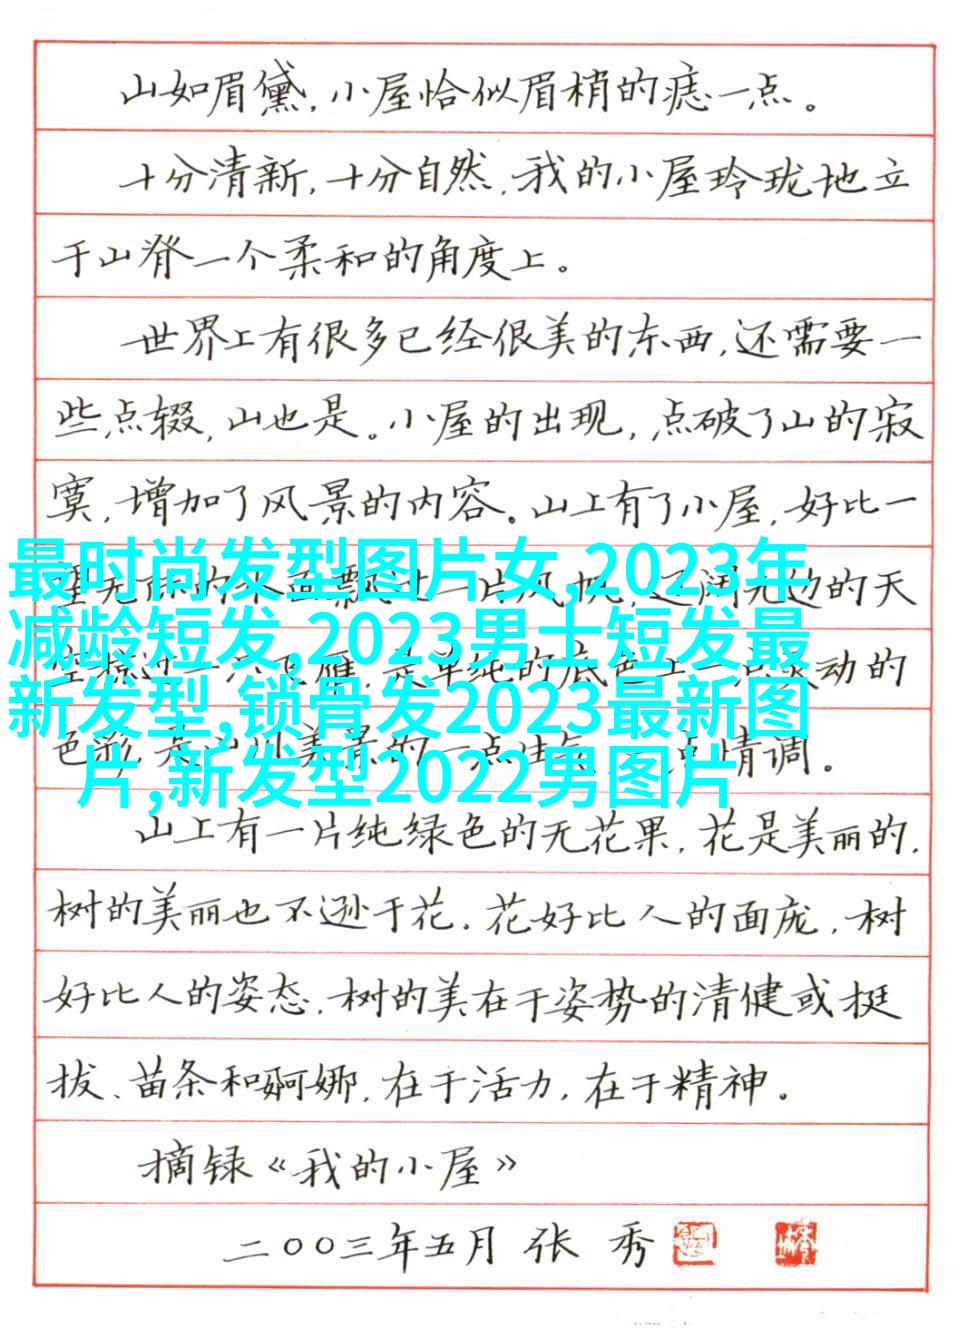 山如眉黛，小屋恰似眉梢的痣一点。
十分清新，十分自然，我的小屋玲珑地立
于山脊一个柔和的角度上。
世界上有很多已经很美的东西，还需要一
些点缀，山也是。小屋的出现，点破了山的寂
寞，增加了风景的内容。山上有了小屋，好比一
最时尚发型图片女,2023年
减龄短发,2023男士短发最
新发型,锁骨发2023最新图
片,新发型2022男图片
的天
动的
情调。
山上有一片纯绿色的无花果，花是美丽的，
树的美丽也不逊于花。花好比人的面庞，树
好比人的姿态。树的美在于姿势的清健或挺
拔、苗条和婀娜，在于活力，在于精神。
摘録《我的小屋》
二〇〇三年五月 张 秀